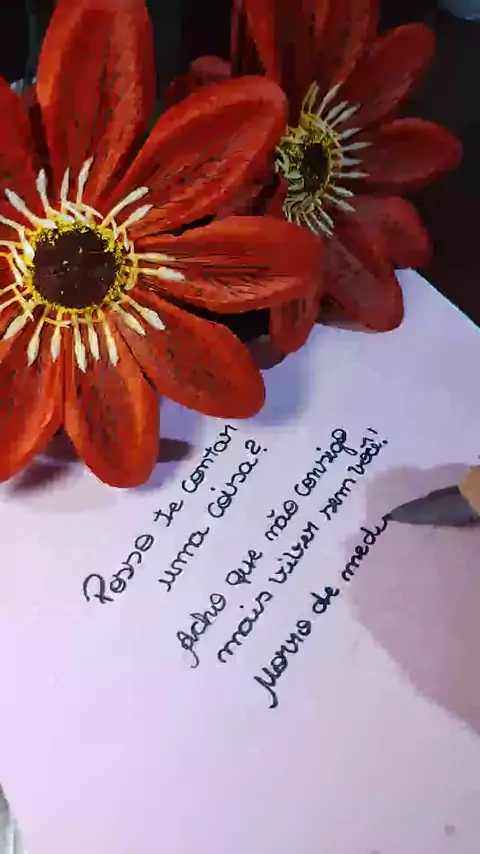 Posso te contar
uma coisa?
Acho que não consigo
mais viver sem você!
Morro de med